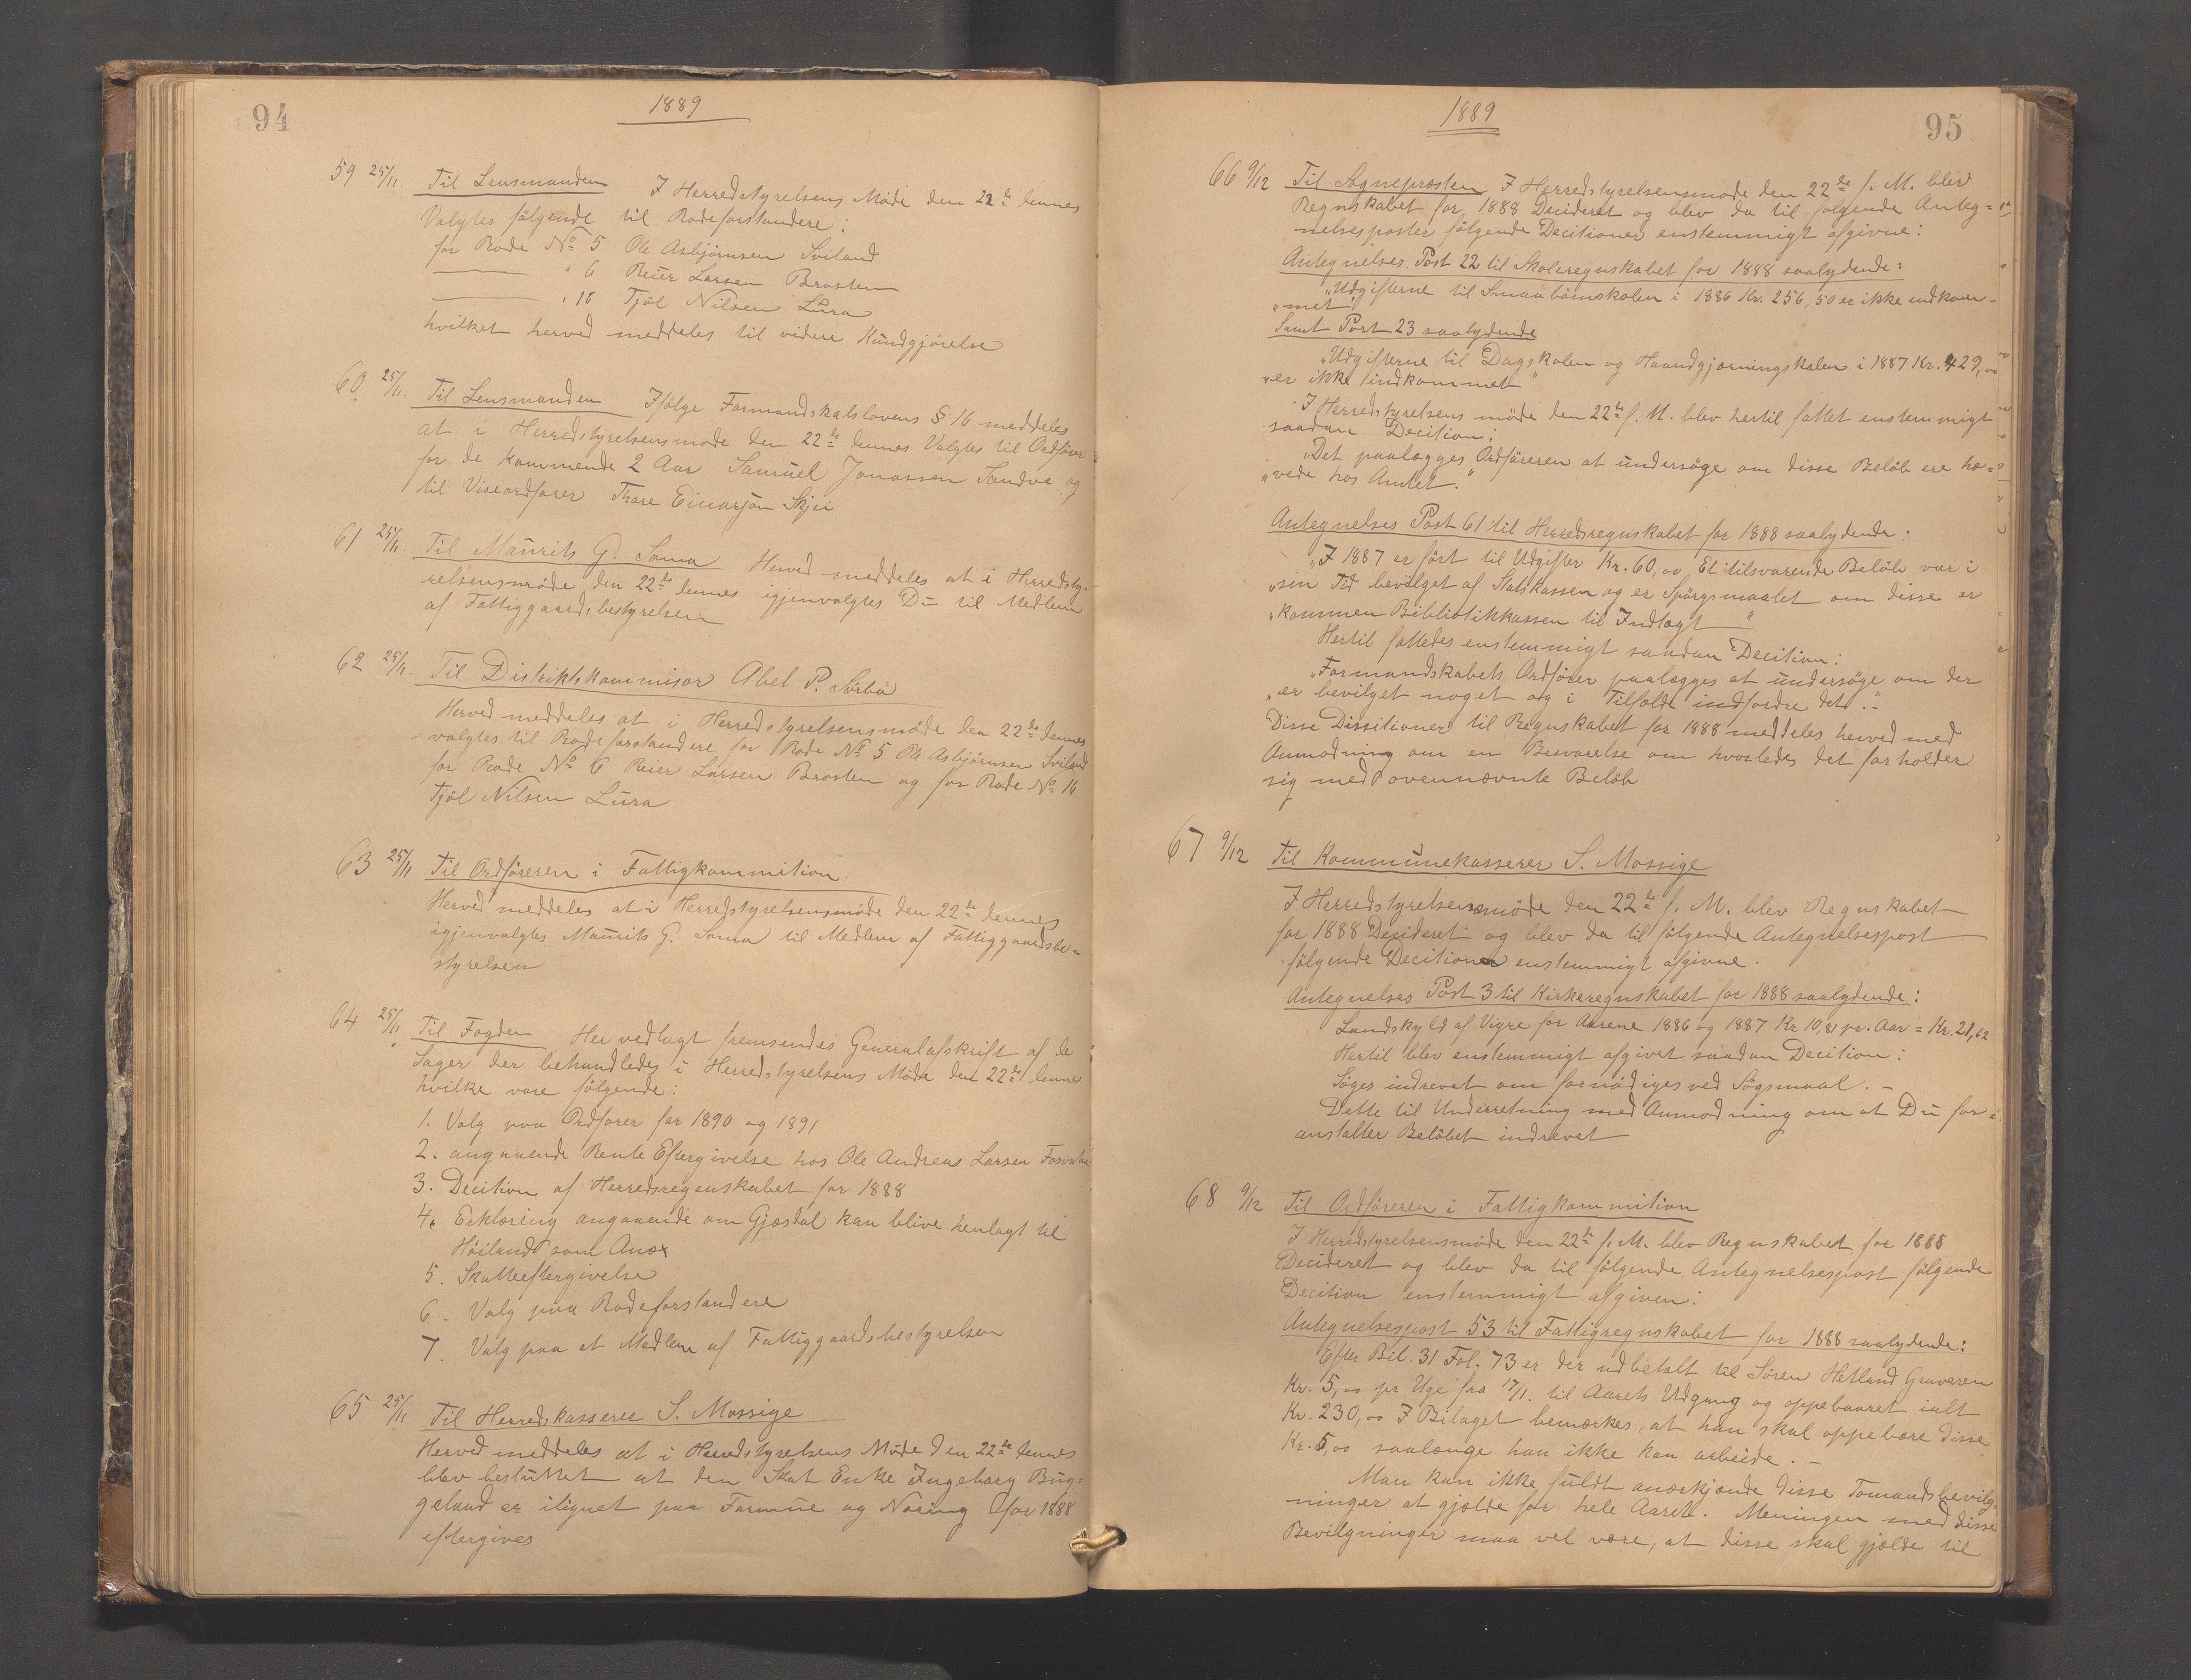 94
1889
59 25/11. Til Lensmanden I Herredstyrelsens Møde den 22de dennes
Valgtes følgende til Rodeforstandere:
for Rode No 5 Ole Asbjørnsen Sviland
" 6 Reier Larsen Brosten
" 16 Tjøl Nilsen Lura
hvilket herved meddeles til videre Kundgjørelse
60 25/11. Til Lensmanden Ifølge Formandskabslovens § 16 meddeles
at i Herredstyrelsensmøde den 22de dennes Valgtes til Ordfører
for de kommende 2 Aar Samuel Jonassen Sandve og
til Viseordfører Thore Einarsøn Skjei
61 25/11. Til Maurits G. Soma Herved meddeles at i Herredsty-
relsensmøde den 22de dennes igjenvalgtes Du til Medlem
af Fattiggaardsbestyrelsen
62 25/11. Til Distriktskommisær Abel P. Sørbø
Herved meddeles at i Herredstyrelsensmøde den 22de dennes
valgtes til Rodeforstandere for Rode No 5 Ole Asbjørnsen Sviland
for Rode No 6 Reier Larsen Brosten og for Rode No 16
Tjøl Nilsen Lura
63 25/11 Til Ordføreren i Fattigkommition
Herved meddeles at i Herredstyrelsensmøde den 22de dennes
igjenvalgtes Maurits G. Soma til Medlem af Fattiggaardsbe=
styrelsen
64 25/11 Til Fogden Her vedlagt fremsendes Generalafskrift af de
Sager der behandledes i Herredstyrelsens Møde den 22de denne
hvilke vare følgende:
1. Valg paa Ordfører for 1890 og 1891
2. angaaende Rente Eftergivelse hos Ole Andreas Larsen
3. Decition af Herredsregenskabet for 1888
4. Erklæring angaaende om Gjæsdal kan blive henlagt til
Høiland som Anex
5. Skatteeftergivelse
6. Valg paa Rodeforstandere
7. Valg paa et Medlem af Fattiggaardsbestyrelsen
65 25/11 Til Herredskasserer S. Mossige
Herved meddeles at i Herredstyrelsens Møde den 22de dennes
blev besluttet at den Skat Enke Ingeborg Büg=
geland er ilignet paa Formue og Næring for 1888
eftergives
95
1889
66 9/12 Til Sognepresten I Herredstyrelsensmøde den 22de f. M. blev
Regnskabet for 1888 Decideret og blev da til følgende Anteg=
nelsesposter følgende Decitioner enstemmigt afgivne:
Antegnelses Post 22 til Skoleregnskabet for 1888 saalydende:
"Udgifterne til Smaabørnskolen i 1886 Kr. 256,50 er ikke indkom-
"met"
Samt Post 23 saalydende
"Udgifterne til Dagskolen og Haandgjærningskolen i 1887 Kr. 429,00
"er ikke indkommet"
I Herredstyrelsens møde den 22de f. M. blev hertil fattet enstemmigt
saadan Decition:
"Det paalægges Ordføreren at undersøge om disse Beløb ere hæ=
"vede hos Amtet."
Antegnelses Post 61 til Herredsregnskabet for 1888 saalydende:
"I 1887 er ført til Udgifter Kr. 60,00 Et tilsvarende Beløb var i
"sin Tid bevilget af Statskassen og er Spørgsmaalet om disse er
"kommen Bibliotikkassen til Indtægt"
Hertil fattedes enstemmigt saadan Decition:
"Formandskabets Ordfører paalægges at undersøge om der
"er bevilget noget og i Tilfælde indfordre det".-
Disse Dissitioner til Regnskabet for 1888 meddeles herved med
Anmodning om en Besvarelse om hvorledes det forholder
sig med ovennævnte Beløb
67 9/12 Til Kommunekasserer S. Mossige
I Herredstyrelsensmøde den 22de f. M. blev Regnskabet
for 1888 Decideret og blev da til følgende Antegnelsespost
følgende Decition enstemmigt afgivne.
Antegnelses Post 3 til Kirkeregnskabet for 1888 saalydende:
Landskyld af Vigre for Aarene 1886 og 1887 Kr 10,81 pr. Aar = Kr. 21,62
Hertil blev enstemmigt afgivet saadan Decition:
Søges indrevet om fornødiges ved Søgsmaal. -
Dette til Underretning med Anmodning om at Du for=
anstalter Beløbet indrevet
68 9/12 Til Ordføreren i Fattigkommition
I Herredstyrelsensmøde den 22de f. M. blev Regnskabet for 1888
Decideret og blev da til følgende Antegnelsespost følgende
Decition enstemmigt afgiven:
Antegnelsespost 53 til Fattigregnskabet for 1888 saalydende:
Efter Bil. 31 Fol. 73 er der udbetalt til Søren Hetland Graveren
Kr. 5,00 pr Uge fra 17/1. til Aarets Udgang og oppebaaret ialt
Kr. 230,00 I Bilaget bemærkes, at han skal oppebære disse
Kr. 5,00 saalænge han ikke kan arbeide. -
Man kan ikke fuldt anerkjende disse Tomandsbevilg=
ninger at gjælde for hele Aaret. Meningen med disse
Bevilgninger maa vel være, at disse skal gjælde til